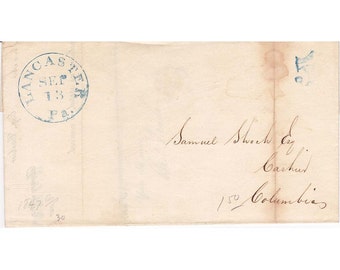 LANCASTER
SEP
13
Pa.
5
Samuel Shoch Esq
Cashier
Columbia
150
1847
30